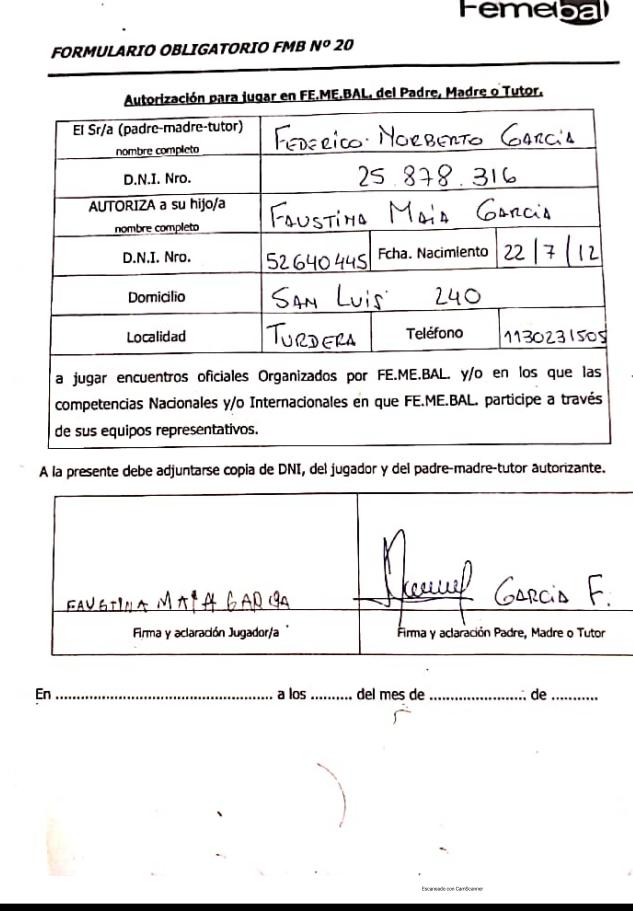 Femebal
FORMULARIO OBLIGATORIO FMB Nº 20
Autorización para jugar en FE.ME.BAL. del Padre, Madre o Tutor.
El Sr/a (padre-madre-tutor) nombre completo FEDERICO NORBERTO GARCIA
D.N.I. Nro. 25.878.316
AUTORIZA a su hijo/a nombre completo FAUSTINA MAIA GARCIA
D.N.I. Nro. 52640445 Fcha. Nacimiento 22/7/12
Domicilio SAN LUIS 240
Localidad TURDERA Teléfono 1130231505
a jugar encuentros oficiales Organizados por FE.ME.BAL. y/o en los que las
competencias Nacionales y/o Internacionales en que FE.ME.BAL. participe a través
de sus equipos representativos.
A la presente debe adjuntarse copia de DNI, del jugador y del padre-madre-tutor autorizante.
FAUSTINA MAIA GARCIA GARCIA F.
Firma y aclaración Jugador/a Firma y aclaración Padre, Madre o Tutor
En .................................................... a los .......... del mes de ....................... de ...........
Escaneado con CamScanner